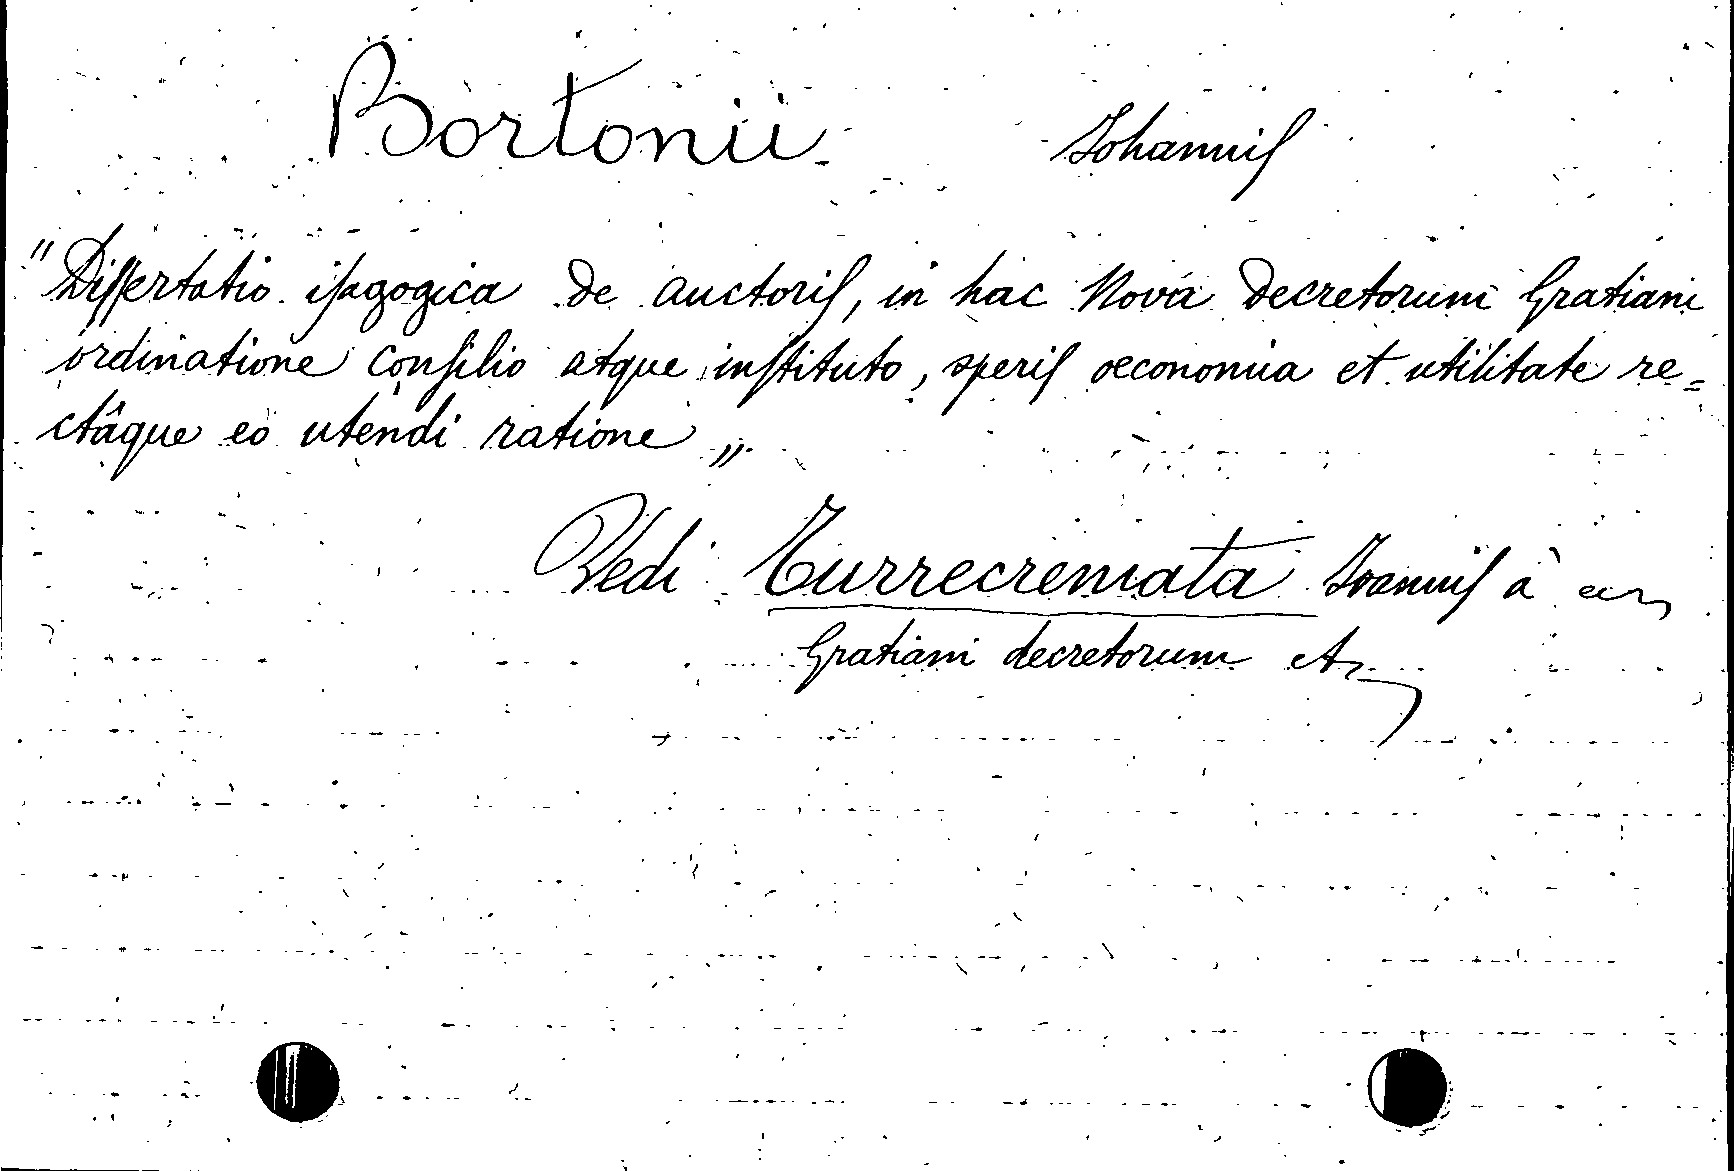 Bortonii Johannis
"Dissertatio isagogica de auctoris, in hac Nova Decretorum Gratiani
ordinatione consilio atque instituto, operis oeconomia et utilitate re=
ctâque eo utendi ratione„
Vedi Turrecremata Joannis à
Gratiani decretorum etc